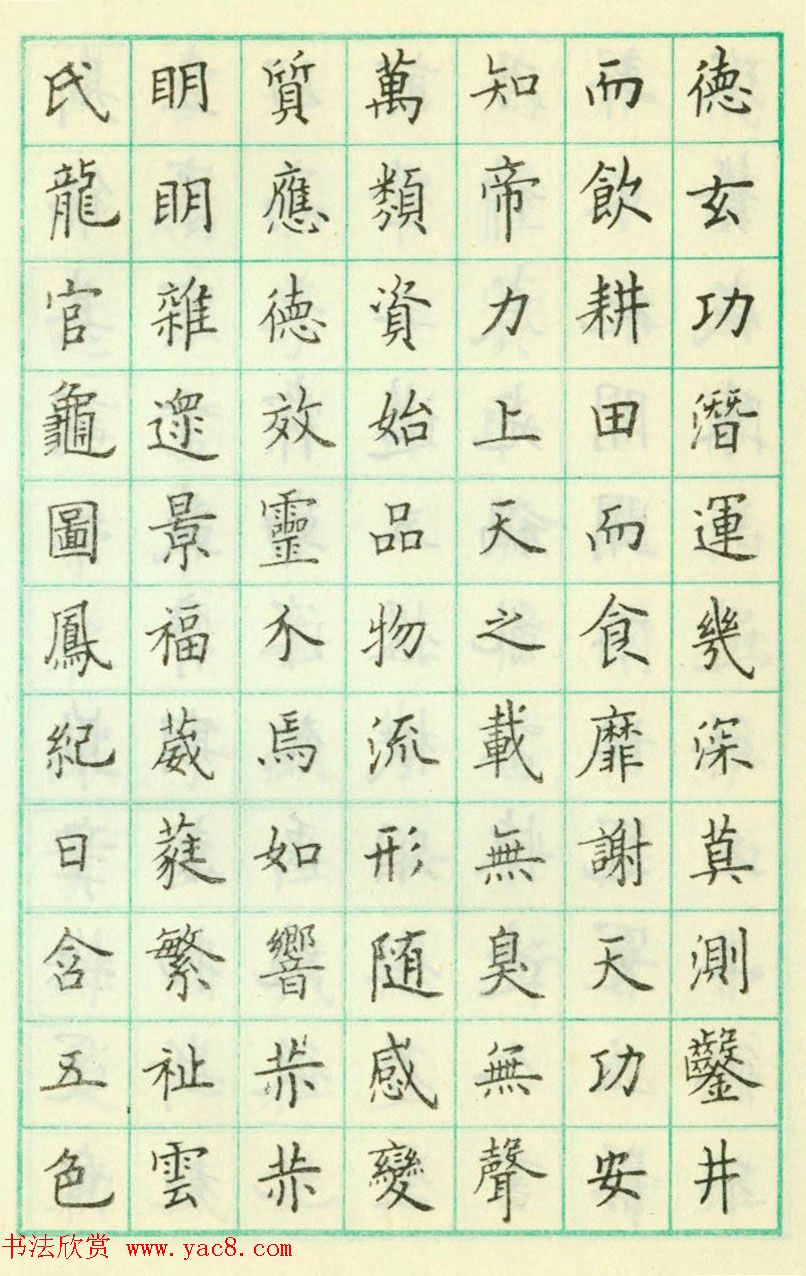 德玄功潛運幾深莫測鑿井
而飲耕田而食靡謝天功安
知帝力上天之載無臭無聲
萬類資始品物流形隨感變
質應德效靈不焉如響赫赫
明明雜遝景福葳蕤繁祉雲
氏龍官龜圖鳳紀日含五色
书法欣赏 www.yac8.com